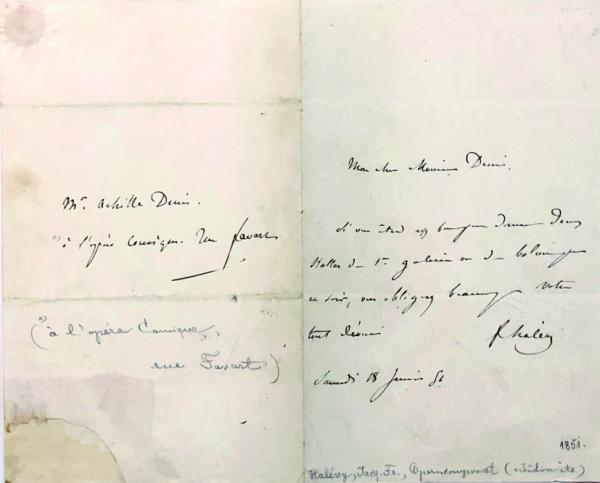 Mr. Achille Denis.
à l'opéra Comique. Rue Favart
(à l'opéra Comique,
rue Favart)
Mon cher Monsieur Denis,
Si vous étiez bon pour donner deux
stalles de 1re galerie ou de balcon pour
ce soir, vous obligerez beaucoup votre
tout dévoué
F Halévy
Samedi 18 Janvier 51
1851.
Halévy, Jacq. Fr., Operncomponist